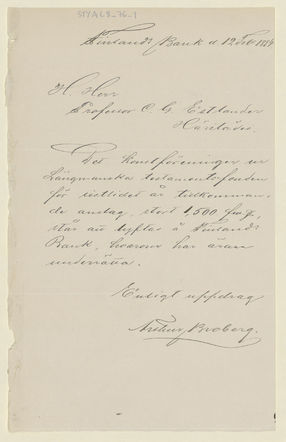 STYALS-76-1
Finlands Bank d. 12 Feb 1889
H. Herr
Professor C. G. Estlander
Härstädes.
Det konstföreningen ur
Längmanska testamentsfonden
för instledes år tillkomman-
de anslag, stort 1,500 fmk,
står att lyftas å Finlands
Bank, hvarom har äran
underrätta.
Enligt uppdrag
Arthur Broberg.